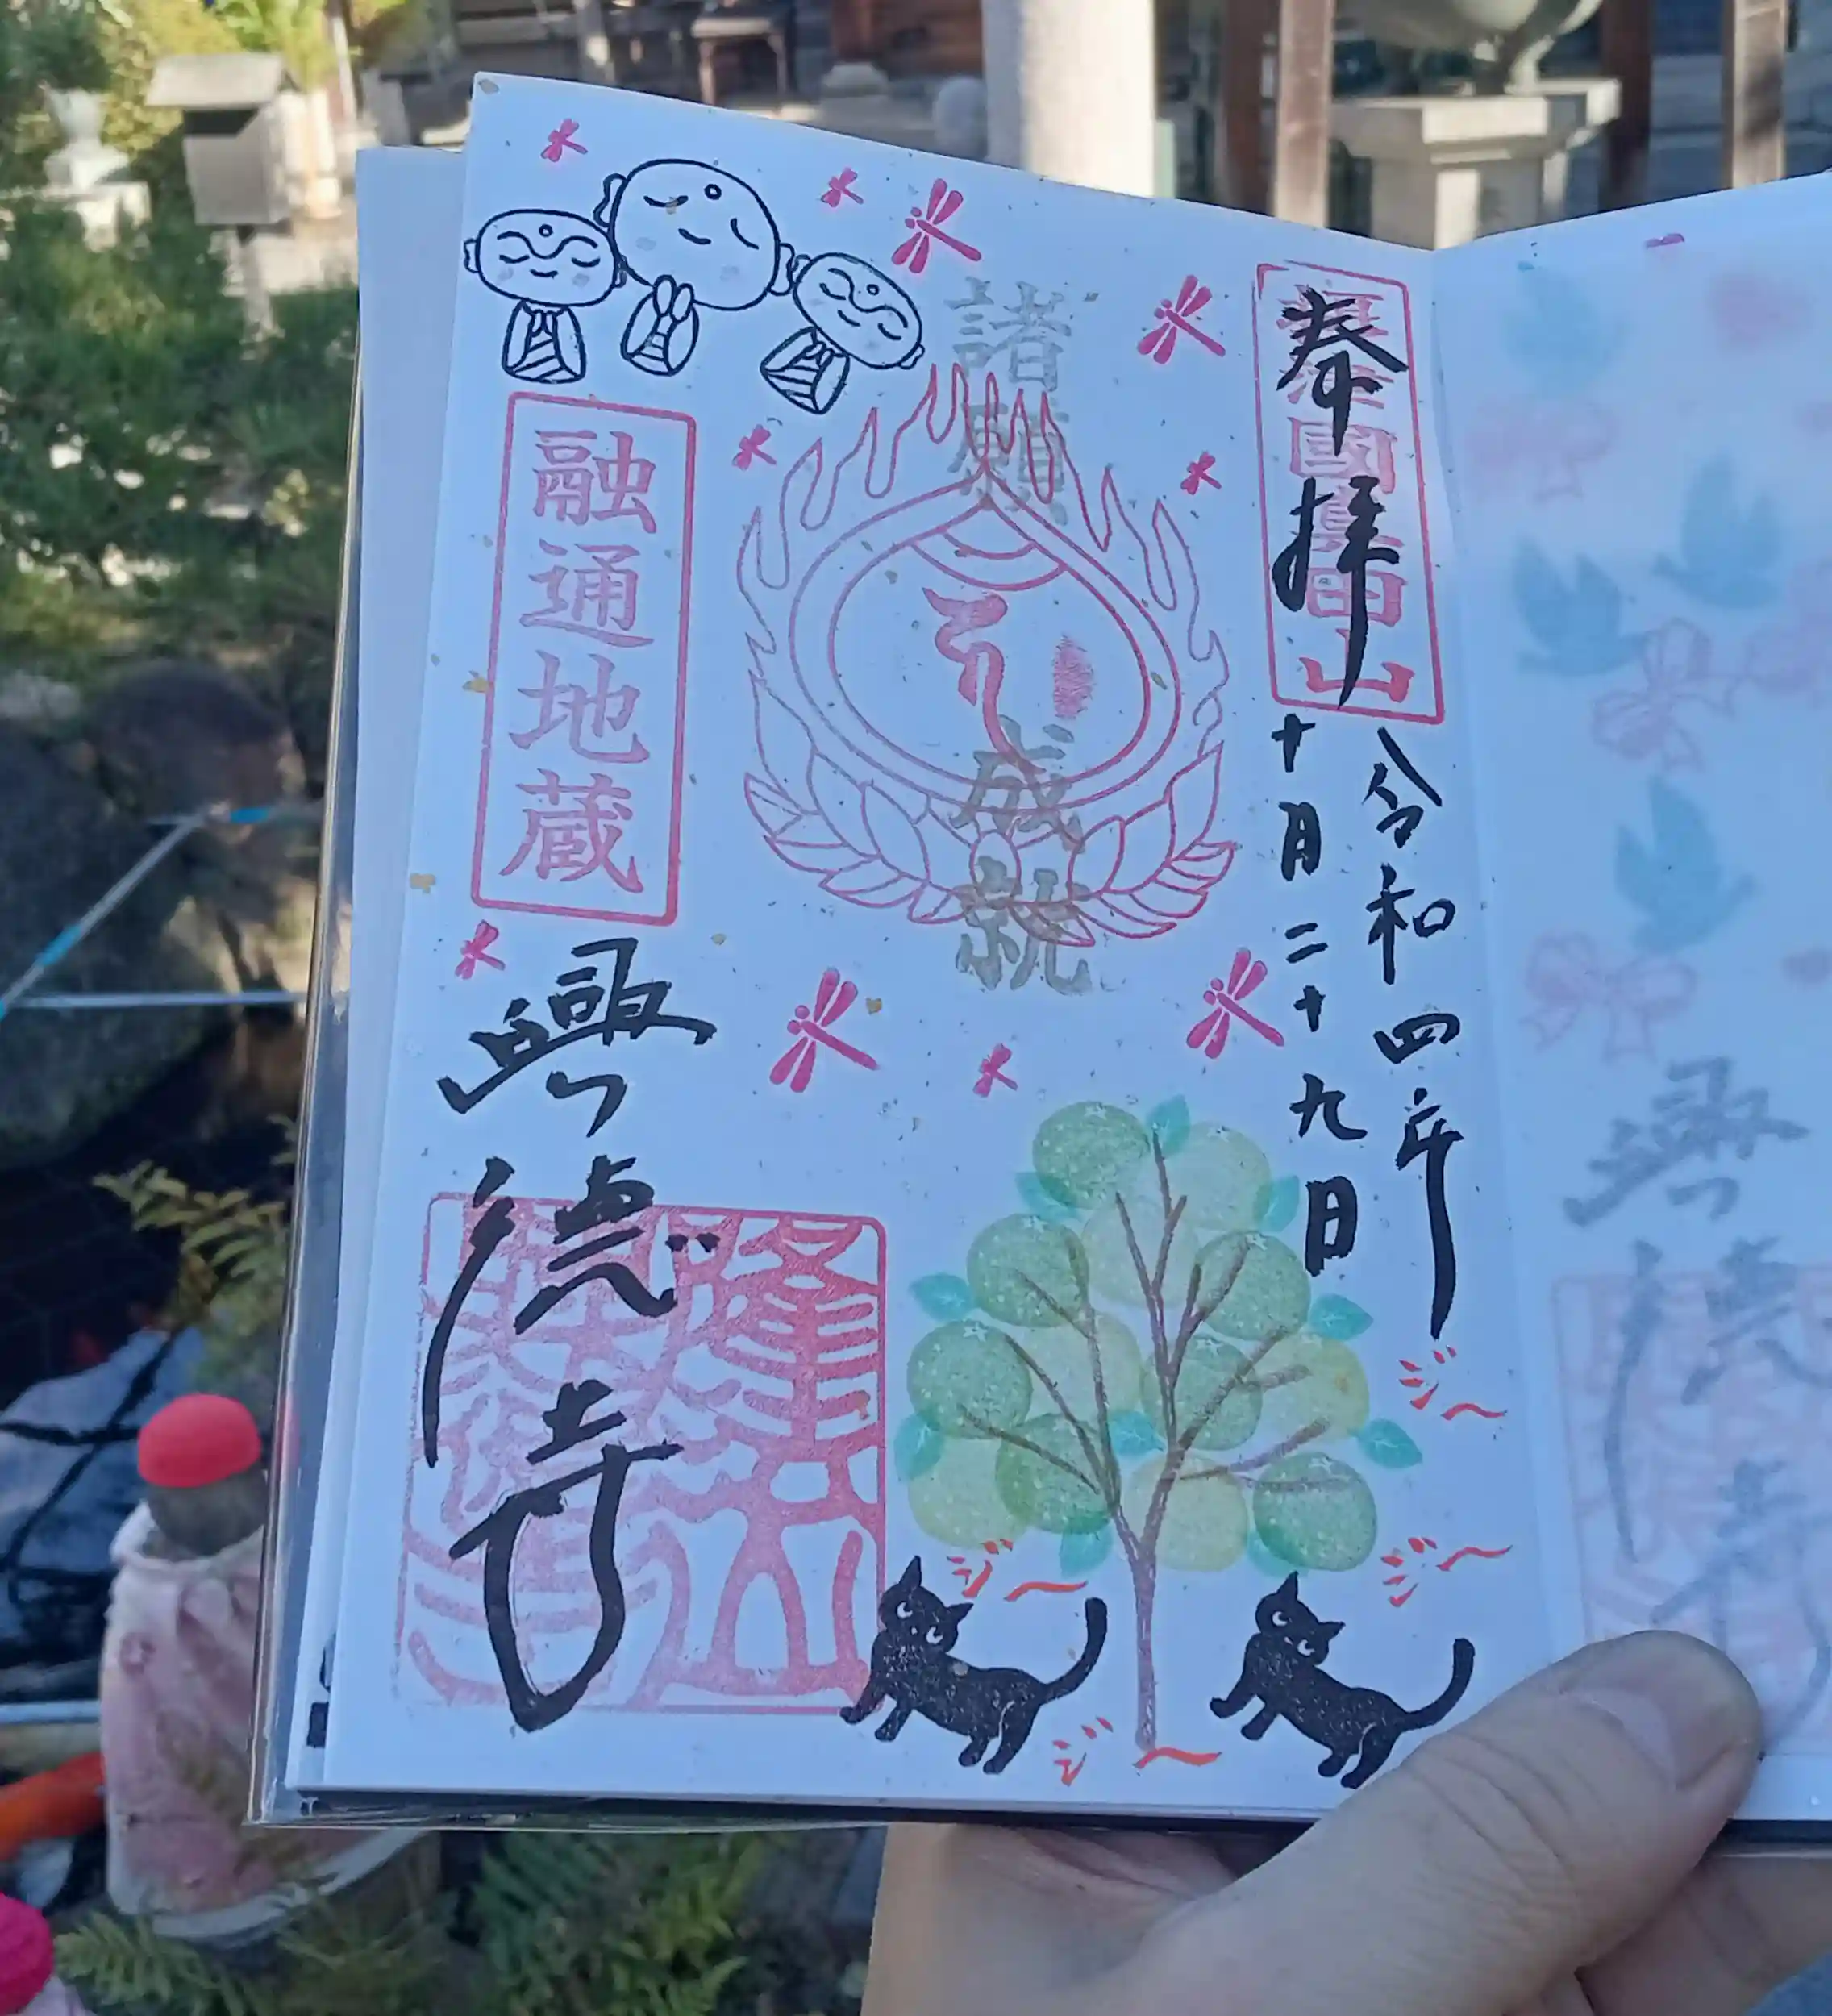 奉拝
令和四年
十月二十九日
諸願
成就
融通地蔵
興徳寺
ジ〜
ジ〜
ジ〜
ジ〜